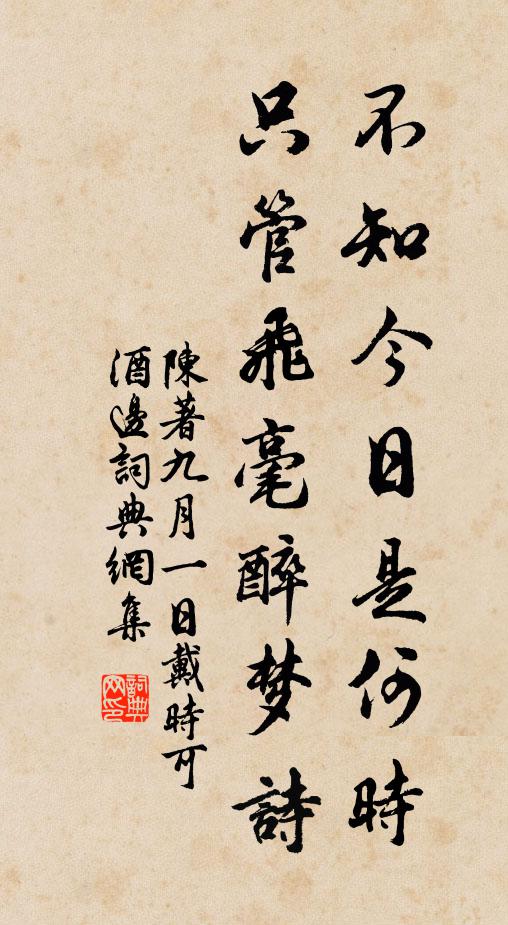 不知今日是何時
只管飛毫醉梦詩
陳著九月一日戴時可
酒邊詞典網集
詞典網印